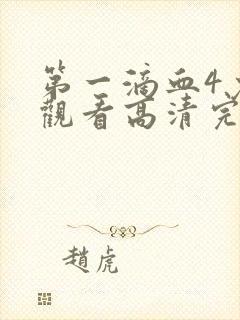 第一滴血4
觀看高清完
趙虎